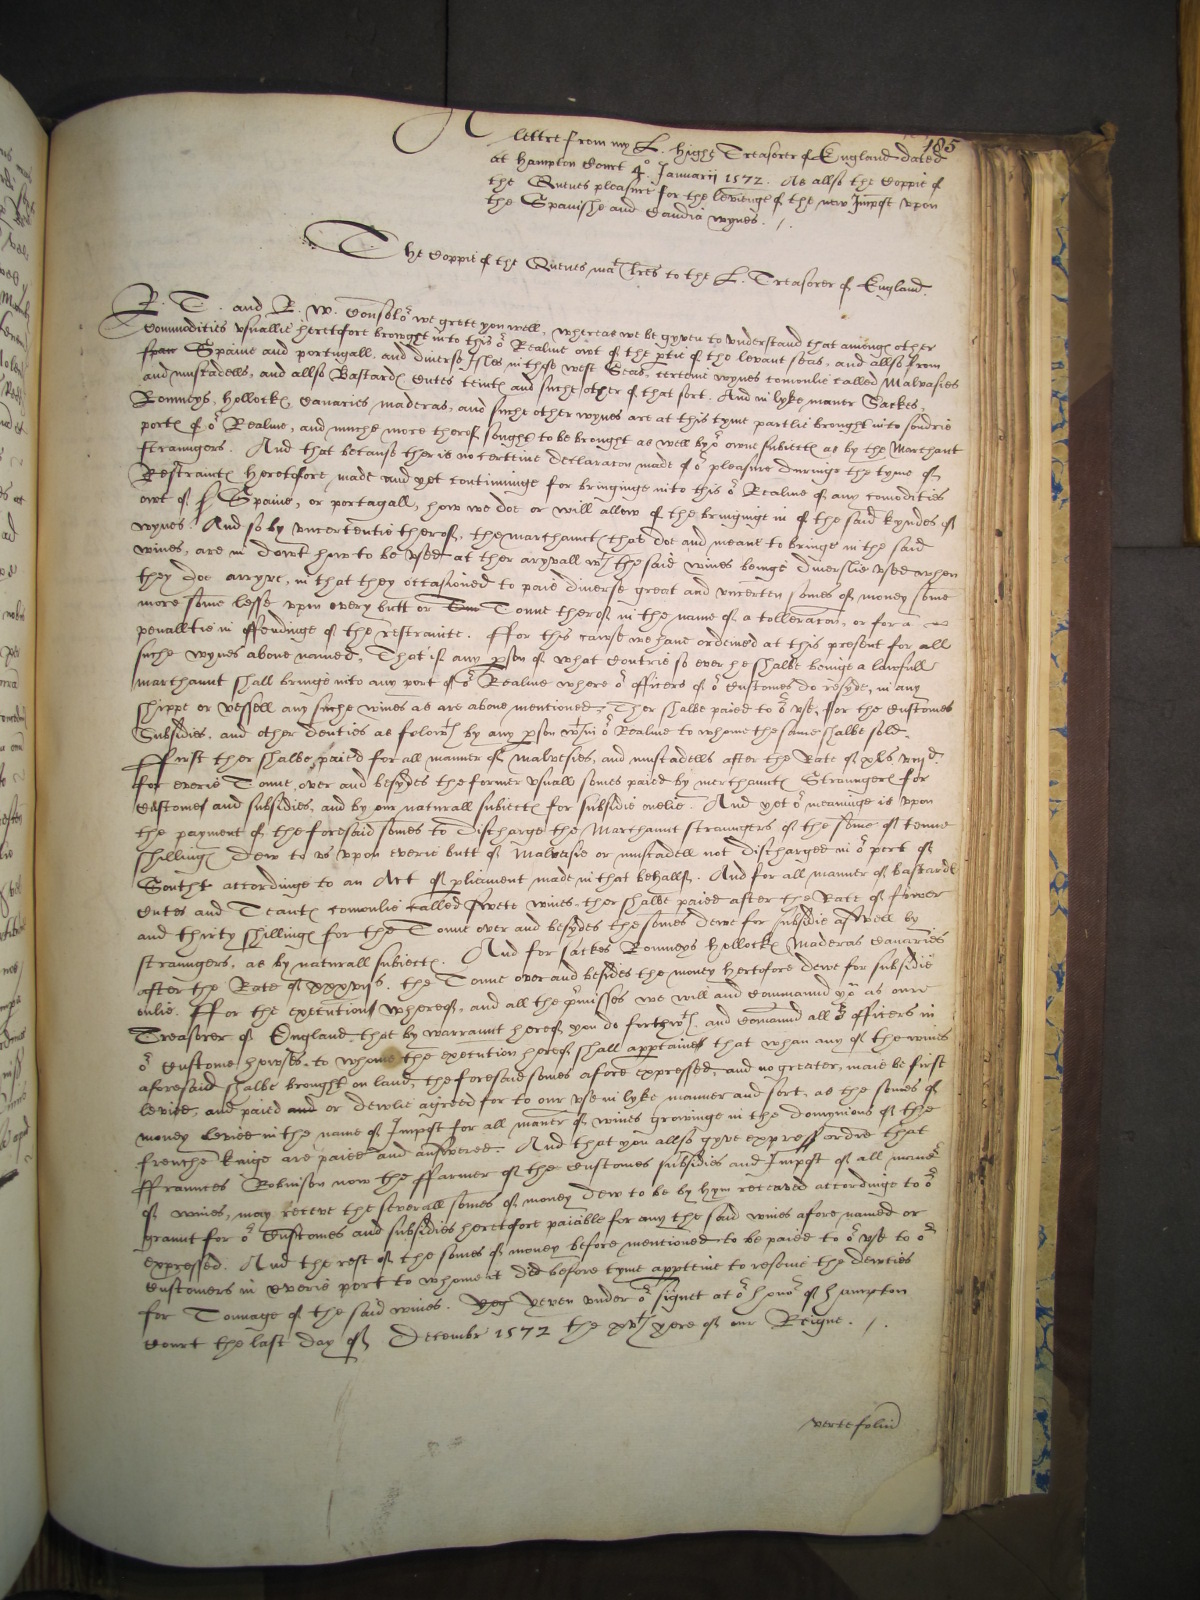 185
A lettre from my L. highe Treasorer of England dated
at Hampton Court 4°. Januarij 1572. As allso the Coppie of
the Quenes pleasure for the levienge of the new Impost upon
the Spanishe and Candia wynes. /.
The Coppie of the Quenes ma^t^ lres to the L. Treasorer of England.
R. T. and R. W. Consolo^r^ we grete you well, whereas we be gyven to understand that amongs other
Commodities usuallie heretofore browght into this o^r^ Realme owt of the ptie of the levant seas, and allso from
span Spaine and portingall, and diverse Isles in those west Seas, certeine wynes comonlie called Malvasies
and muscadells, and allso Bastards Cutes teints and suche other of that sort. And in lyke maner Sackes,
Romneys, Hollocks Canaries maderas, and suche other wynes are at this tyme partlie brought into sondrie
ports of o^r^ Realme, and muche more therof sought to be brought as well by o^r^ owne subiects as by the Marchant
straungers. And that because ther is no certeine declaracon made of o^r^ pleasure duringe the tyme of
Restraints heretofore made and yet continuinge for bringinge into this o^r^ Realme of any comodities
owt of Spaine, or portagall, how we doe or will allow of the bringinge in of the said kyndes of
wynes. And so by uncerteintie therof, the marchaunts that doe and meane to bringe in the said
wines, are in dowt how to be used at ther aryvall w^th^ the said wines beinge diverslie used when
they doe arryve, in that they occasioned to paie diverse great and uncerten somes of money some
more some lesse upon every butt or Tonne therof in the name of a tolleracon, or for a
penaltie in offendinge of the restrainte. Ffor this cawse we have ordeined at this present for all
suche wynes above named, That if any pson of what Contrie so ever he shalbe beinge a lawfull
marchaunt shall bringe into any port of o^r^ Realme where o^r^ officers of o^r^ Customes do resyde, in any
shippe or vessell any suche wines as are above mentioned, Ther shalbe paied to o^r^ use, for the Customes
Subsidies, and other deuties as folow^th^ by any pson w^th^in o^r^ Realme to whome the same shalbe sold.
Ffirst ther shalbe paied for all manner of malvesies, and muscadells after the Rate of xls viij^d^
for everie Tonne, over and besydes the former usuall somes paied by merchaunts Straungers for
Customes and subsidies, and by our naturall subiects for subsidie onelie. And yet o^r^ meaninge is upon
the payment of the foresaid somes to discharge the Marchaunt straungers of the some of tenne
shillings dew to us upon everie butt of Malvasie or muscadell not discharged in o^r^ port of
Southt accordinge to an Act of pliament made in that behalf. And for all manner of bastards
Cutes and Teants comonlie called swete wines, ther shalbe paied after the Rate of fower
and thirty shillings for the Tonne over and besydes the somes dewe for subsidie aswell by
straungers, as by naturall subiects. And for sackes Romneys Hollocks Maderas Canaries
after the Rate of the Tonne over and besides the money hertofore dewe for subsidie
onlie. Ffor the execution wherof, and all the pmisses we will and command yo^u^ as our
Treasorer of England, that by warraunt herof you do forthw^th^, and comand all o^r^ officers in
o^r^ Custome howses, to whome the execution herof shall appertaine that whan any of the wines
aforesaid shalbe brought on land, the foresaid somes afore expressed, and no greater, maie be first
levied, and paied and or dewlie agreed for to our use in lyke manner and sort, as the somes of
money levied in the name of Impost for all maner of wines growinge in the domynions of the
frenche kinge are paied and answered. And that you allso gyve expresse ordre that
Ffraunces Robinson now the ffarmer of the Customes subsidies and Impost of all maner
of wines, may receve the severall somes of money dew to be by hym receaved accordinge to o^r^
graunt for o^r^ Customes and subsidies heretofore paiable for any the said wines afore named or
expressed. And the rest of the somes of money before mentioned to be paied to o^r^ use to o^r^
Customers in everie port to whome it did before tyme apptaine to receive the dewties
for Tonnage of the said wines. Yeven under o^r^ signet at o^r^ hono^r^ of Hampton
Court the last day of December 1572 the xv^th^ yere of our Reigne. /.
verte foliu